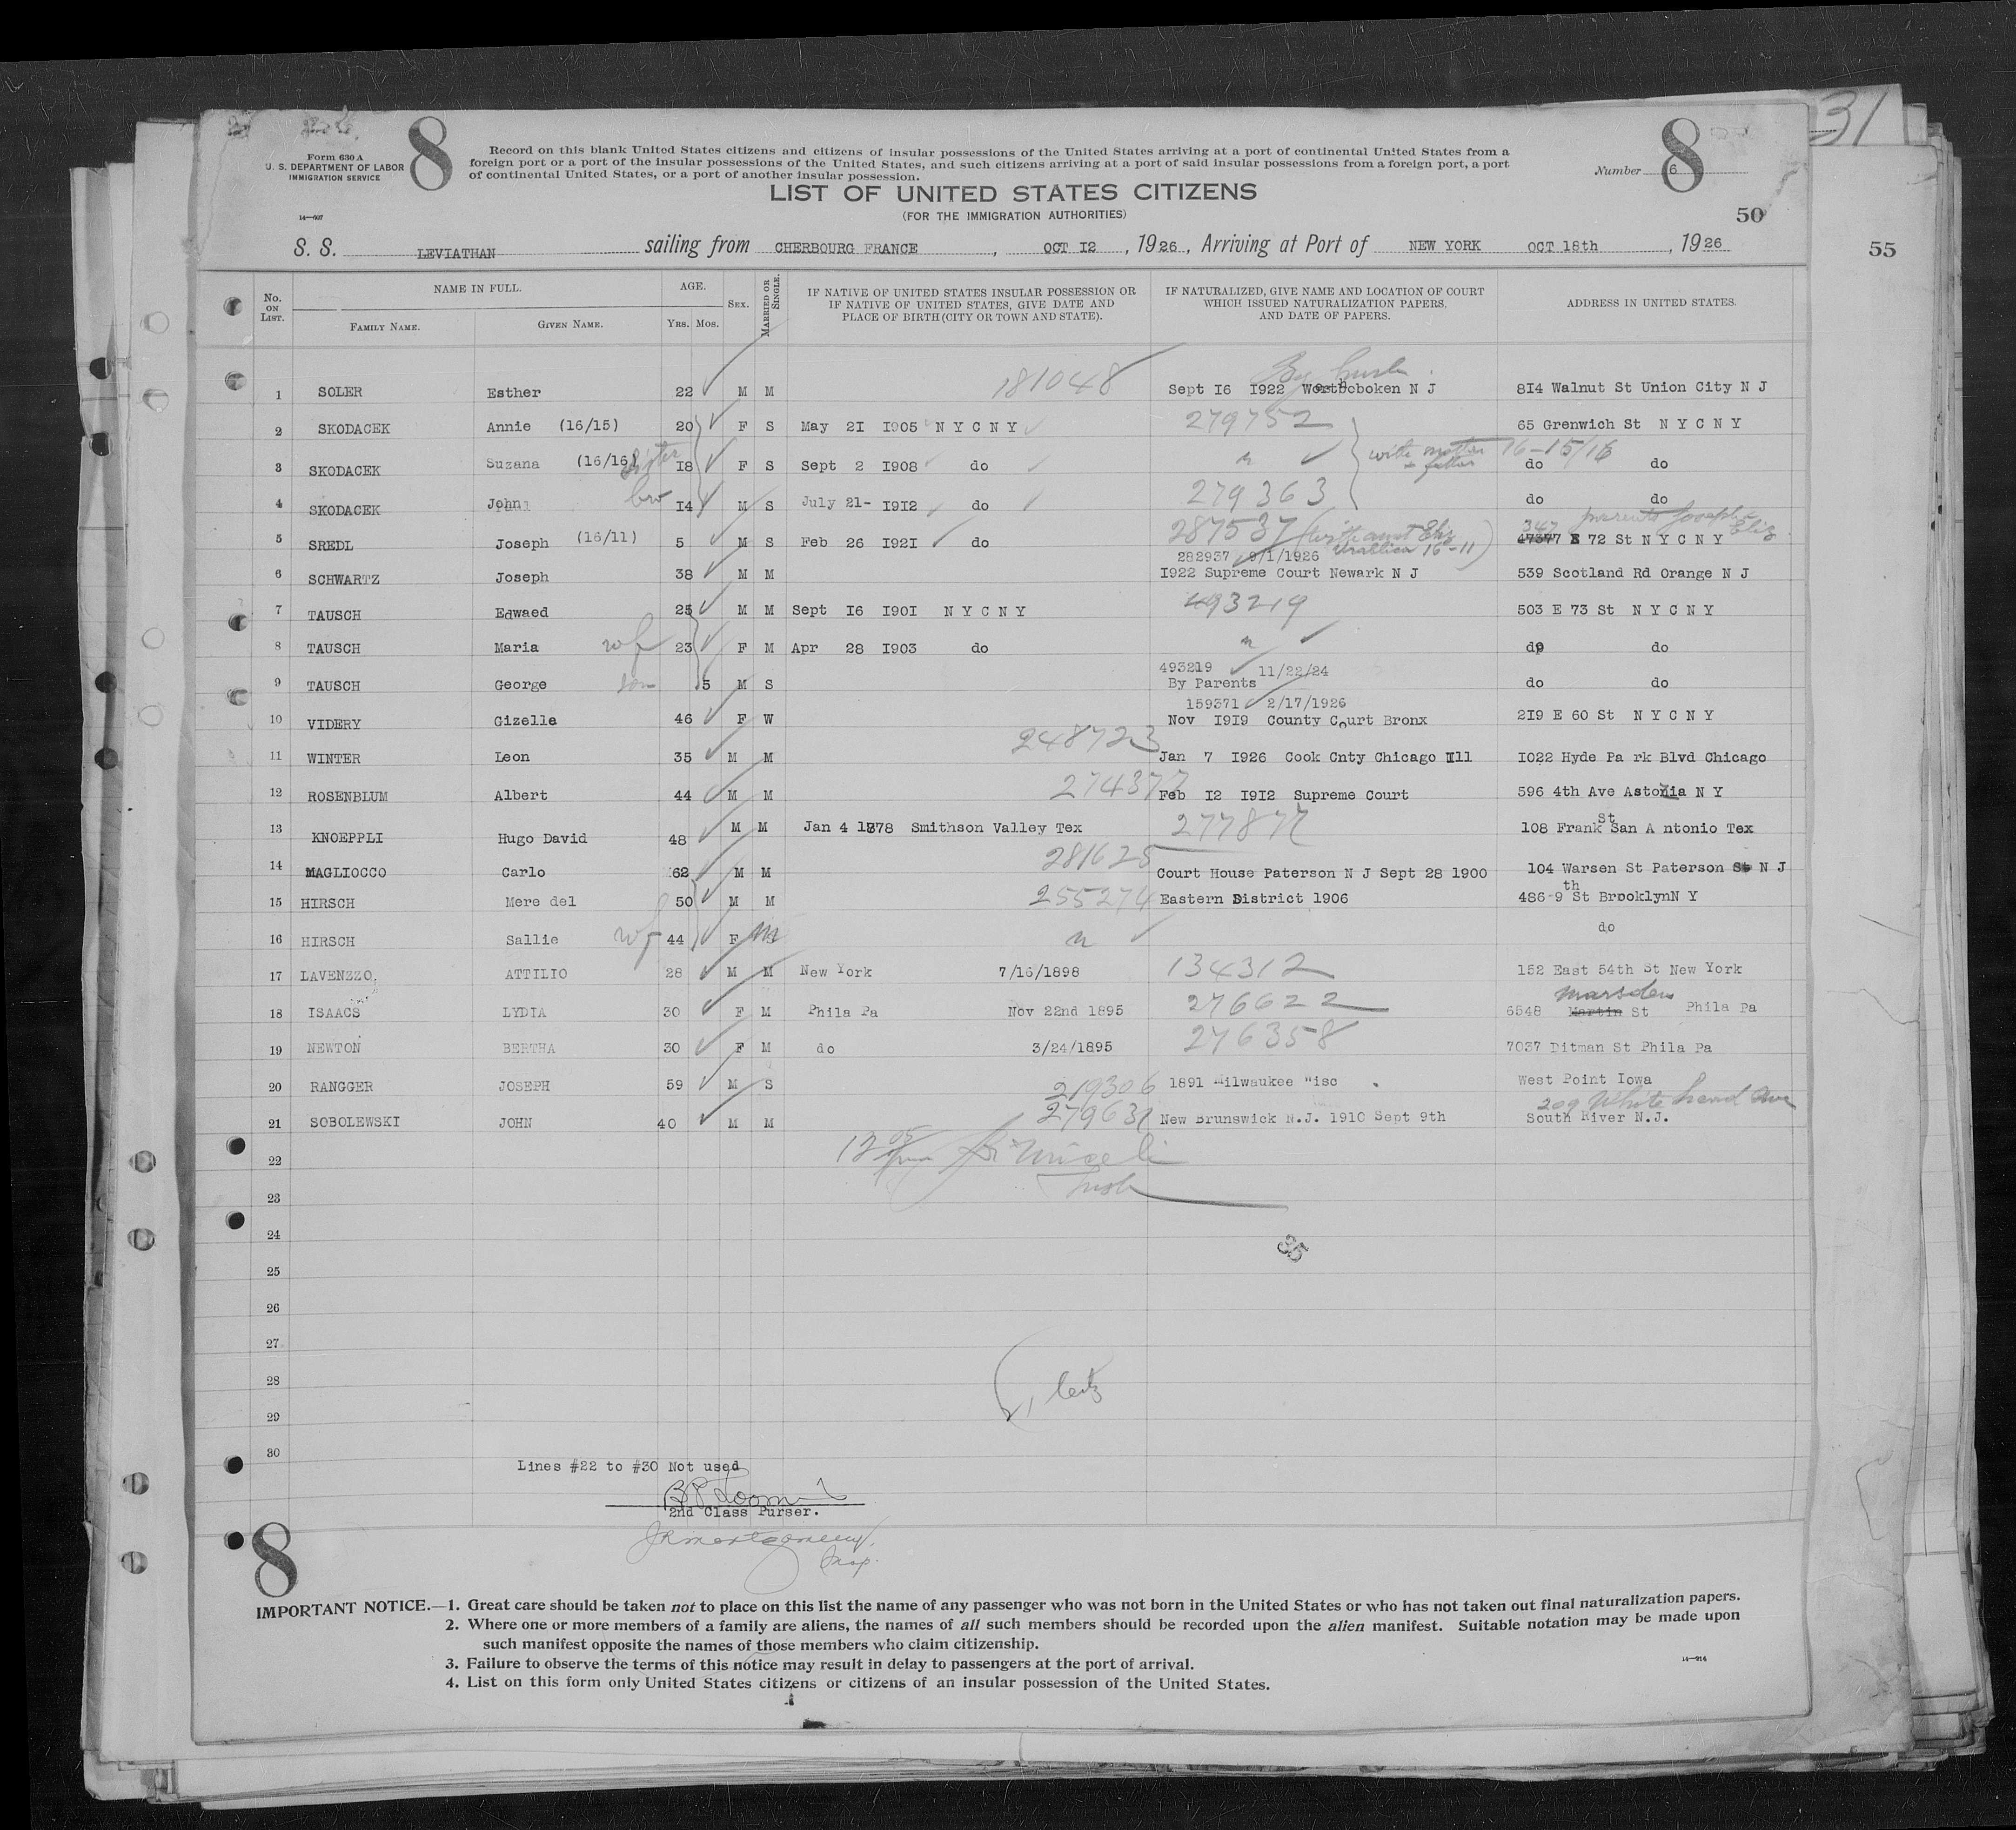 31
8
8
Form 630 A
U. S. DEPARTMENT OF LABOR
IMMIGRATION SERVICE
Record on this blank United States citizens and citizens of insular possessions of the United States arriving at a port of continental United States from a
foreign port or a port of the insular possessions of the United States, and such citizens arriving at a port of said insular possessions from a foreign port, a port
of continental United States, or a port of another insular possession.
Number 6
LIST OF UNITED STATES CITIZENS
(FOR THE IMMIGRATION AUTHORITIES)
14—607
50
55
S. S. LEVIATHAN sailing from CHERBOURG FRANCE, OCT 12, 1926, Arriving at Port of NEW YORK OCT 18th, 1926
No. ON LIST. NAME IN FULL. AGE. SEX. MARRIED OR SINGLE. IF NATIVE OF UNITED STATES INSULAR POSSESSION OR IF NATIVE OF UNITED STATES, GIVE DATE AND PLACE OF BIRTH (CITY OR TOWN AND STATE). IF NATURALIZED, GIVE NAME AND LOCATION OF COURT WHICH ISSUED NATURALIZATION PAPERS, AND DATE OF PAPERS. ADDRESS IN UNITED STATES.
FAMILY NAME. GIVEN NAME. YRS. MOS.
By husb
1 SOLER Esther 22 M M 181048 Sept 16 1922 Hoboken N J 814 Walnut St Union City N J
2 SKODACEK Annie (16/15) 20 F S May 21 1905 N Y C NY 279752 65 Grenwich St N Y C NY
3 SKODACEK Suzana (16/16) sister 18 F S Sept 2 1908 do " with mother & father 16-15/16 do do
4 SKODACEK John bro 14 M S July 21- 1912 do 279363 do do
parents Joseph & Eliz
5 SREDL Joseph (16/11) 5 M S Feb 26 1921 do 287537 (with aunt Eliz 16-11) 347 E 72 St N Y C N Y
282937 9/1/1926
6 SCHWARTZ Joseph 38 M M 1922 Supreme Court Newark N J 539 Scotland Rd Orange N J
7 TAUSCH Edwaed 25 M M Sept 16 1901 N Y C N Y 493219 503 E 73 St N Y C NY
8 TAUSCH Maria wf 23 F M Apr 28 1903 do " do do
493219 11/22/24
9 TAUSCH George son 5 M S By Parents do do
159371 2/17/1926
10 VIDERY Gizella 46 F W Nov 1919 County Court Bronx 219 E 60 St N Y C NY
11 WINTER Leon 35 M M 248723 Jan 7 1926 Cook Cnty Chicago Ill 1022 Hyde Pa rk Blvd Chicago
12 ROSENBLUM Albert 44 M M 274377 Feb 12 1912 Supreme Court 596 4th Ave Astoria N Y
13 KNOEPPLI Hugo David 48 M M Jan 4 1878 Smithson Valley Tex 277877 108 Frank St San A ntonio Tex
14 MAGLIOCCO Carlo 62 M M 281625 Court House Paterson N J Sept 28 1900 104 Warsen St Paterson St N J
15 HIRSCH Mere del 50 M M 255274 Eastern District 1906 486-9th St BrooklynN Y
16 HIRSCH Sallie wf 44 F M " do
17 LAVENZZO, ATTILIO 28 M M New York 7/16/1898 134312 152 East 54th St New York
18 ISAACS LYDIA 30 F M Phila Pa Nov 22nd 1895 276622 6548 Martin Marsden St Phila Pa
19 NEWTON BERTHA 30 F M do 3/24/1895 276358 7037 Ditman St Phila Pa
20 RANGGER JOSEPH 59 M S 219306 1891 Milwaukee Wisc . West Point Iowa
209 Whitehead Ave
21 SOBOLEWSKI JOHN 40 M M 279631 New Brunswick N.J. 1910 Sept 9th South River N.J.
22
23
24
25
26
27
28
29
30
Lines #22 to #30 Not used
2nd Class Purser.
J R Montgomery
Insp.
8
IMPORTANT NOTICE.—1. Great care should be taken not to place on this list the name of any passenger who was not born in the United States or who has not taken out final naturalization papers.
2. Where one or more members of a family are aliens, the names of all such members should be recorded upon the alien manifest. Suitable notation may be made upon
such manifest opposite the names of those members who claim citizenship.
3. Failure to observe the terms of this notice may result in delay to passengers at the port of arrival.
4. List on this form only United States citizens or citizens of an insular possession of the United States.
14—916